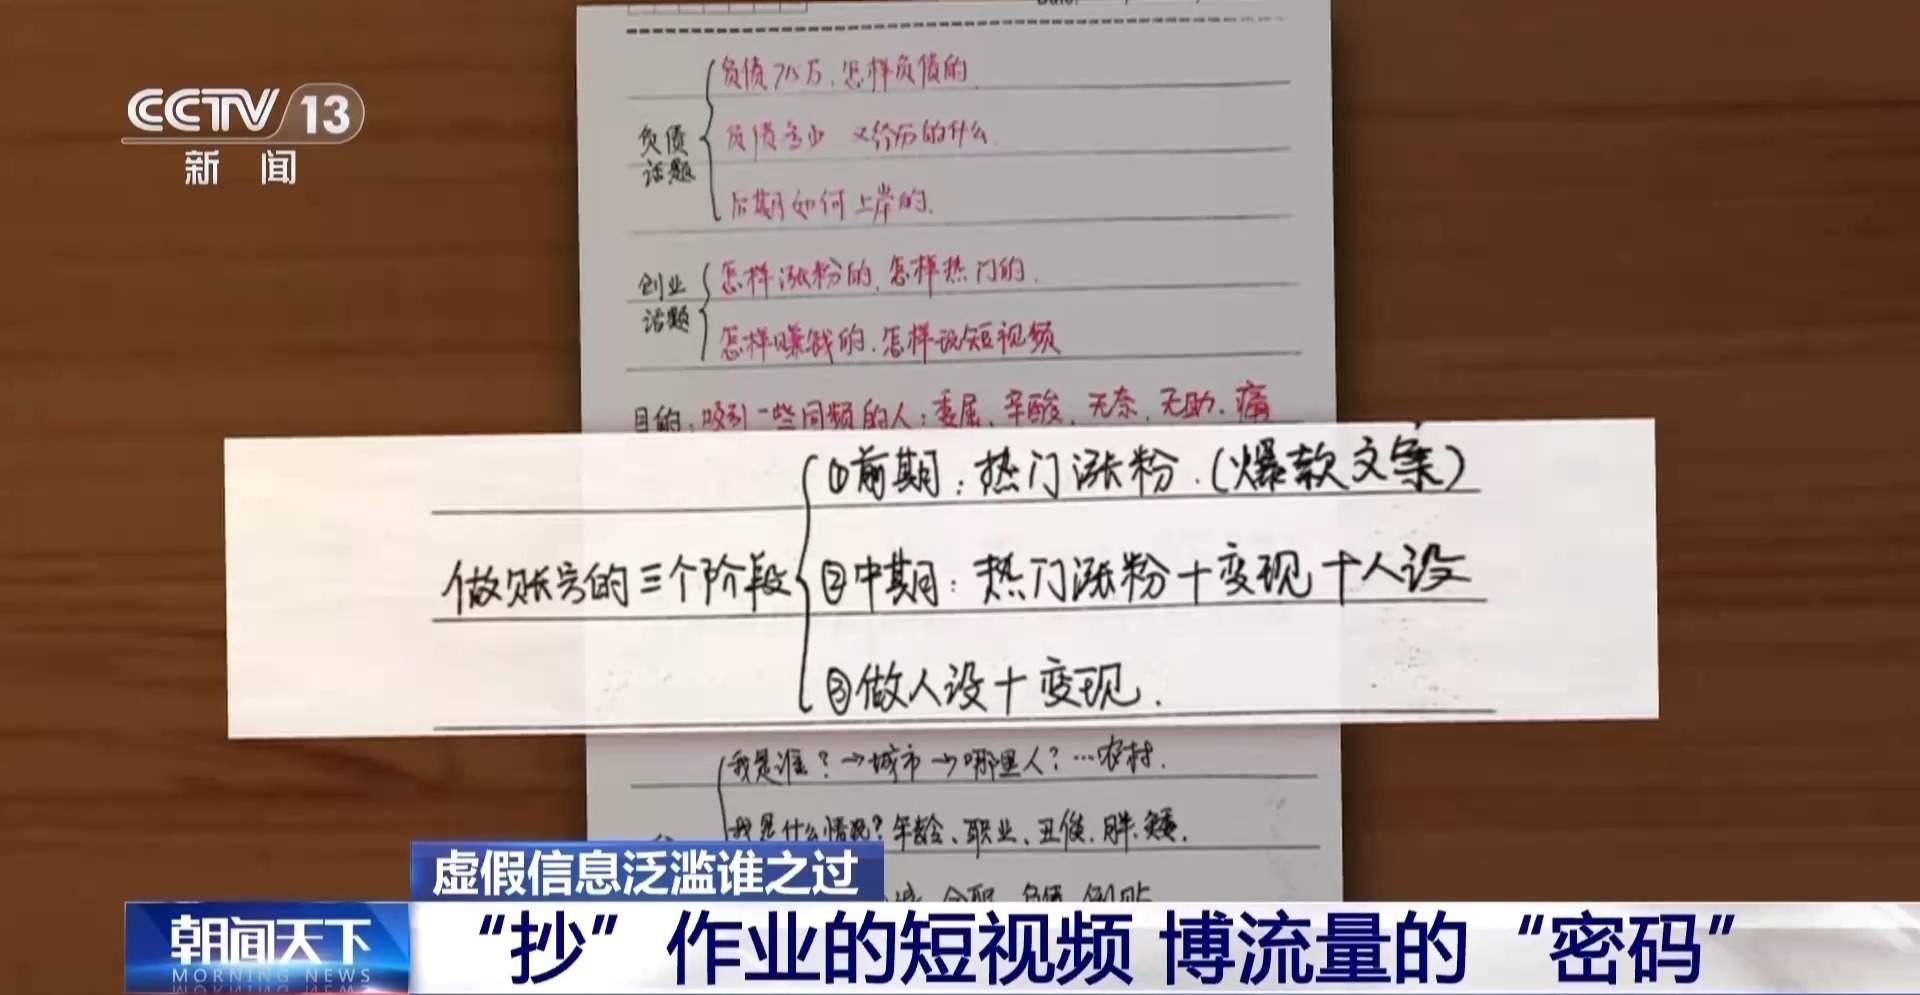 CCTV 13
新闻
负债
话题
负债75万,怎样负债的.
负债多少 又经历的什么.
后期如何上岸的.
创业
话题
怎样涨粉的,怎样热门的.
怎样赚钱的.怎样说短视频
目的:吸引一些同频的人:委屈、辛酸、无奈、无助、痛
做账号的三个阶段
①前期:热门涨粉.(爆款文案)
②中期:热门涨粉+变现+人设
③做人设+变现.
我是谁?→城市→哪里人?…农村.
我是什么情况?年龄、职业、丑俊.胖.矮.
虚假信息泛滥谁之过
朝闻天下
MORNING NEWS
“抄”作业的短视频 博流量的“密码”